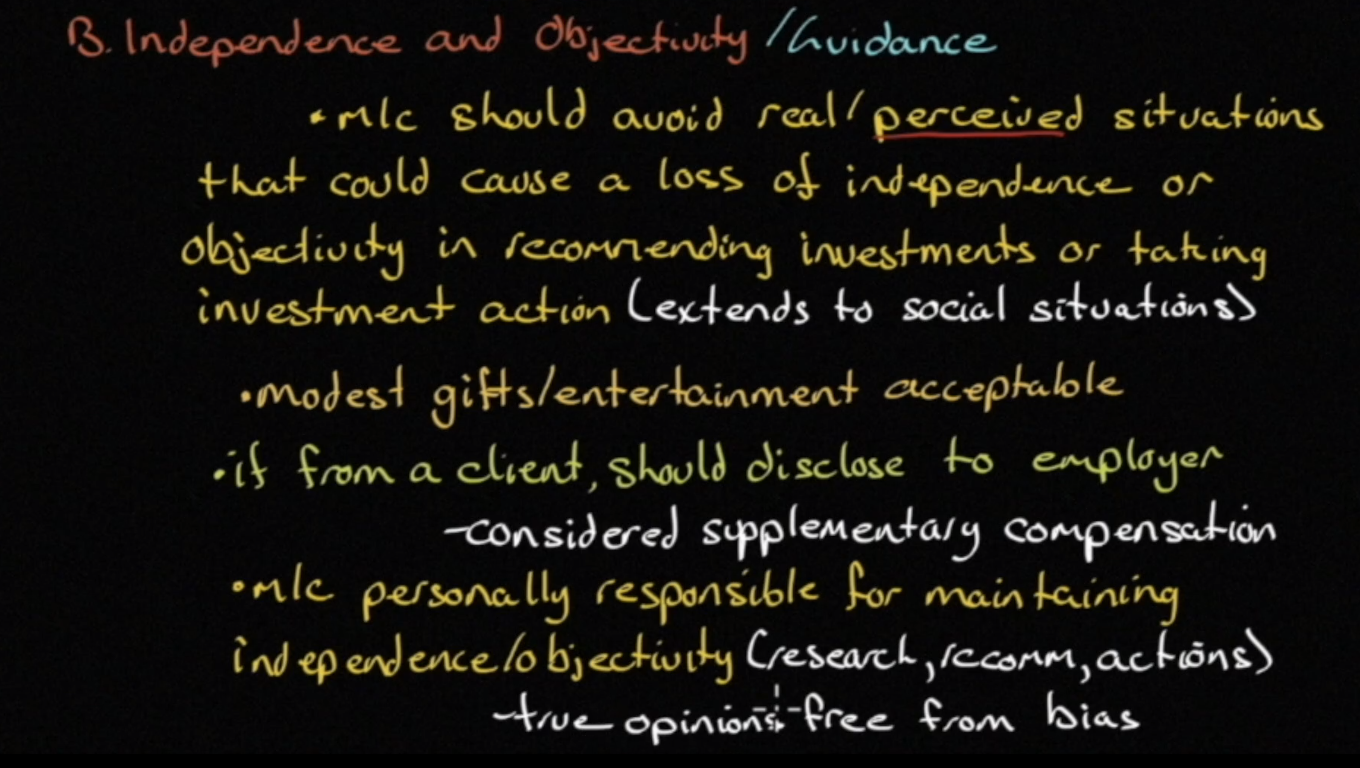 B. Independence and Objectivity /Guidance
• m/c should avoid real/perceived situations
that could cause a loss of independence or
objectivity in recommending investments or taking
investment action (extends to social situations)
• modest gifts/entertainment acceptable
• if from a client, should disclose to employer
- considered supplementary compensation
• m/c personally responsible for maintaining
independence/objectivity (research, recomm, actions)
- true opinions - free from bias